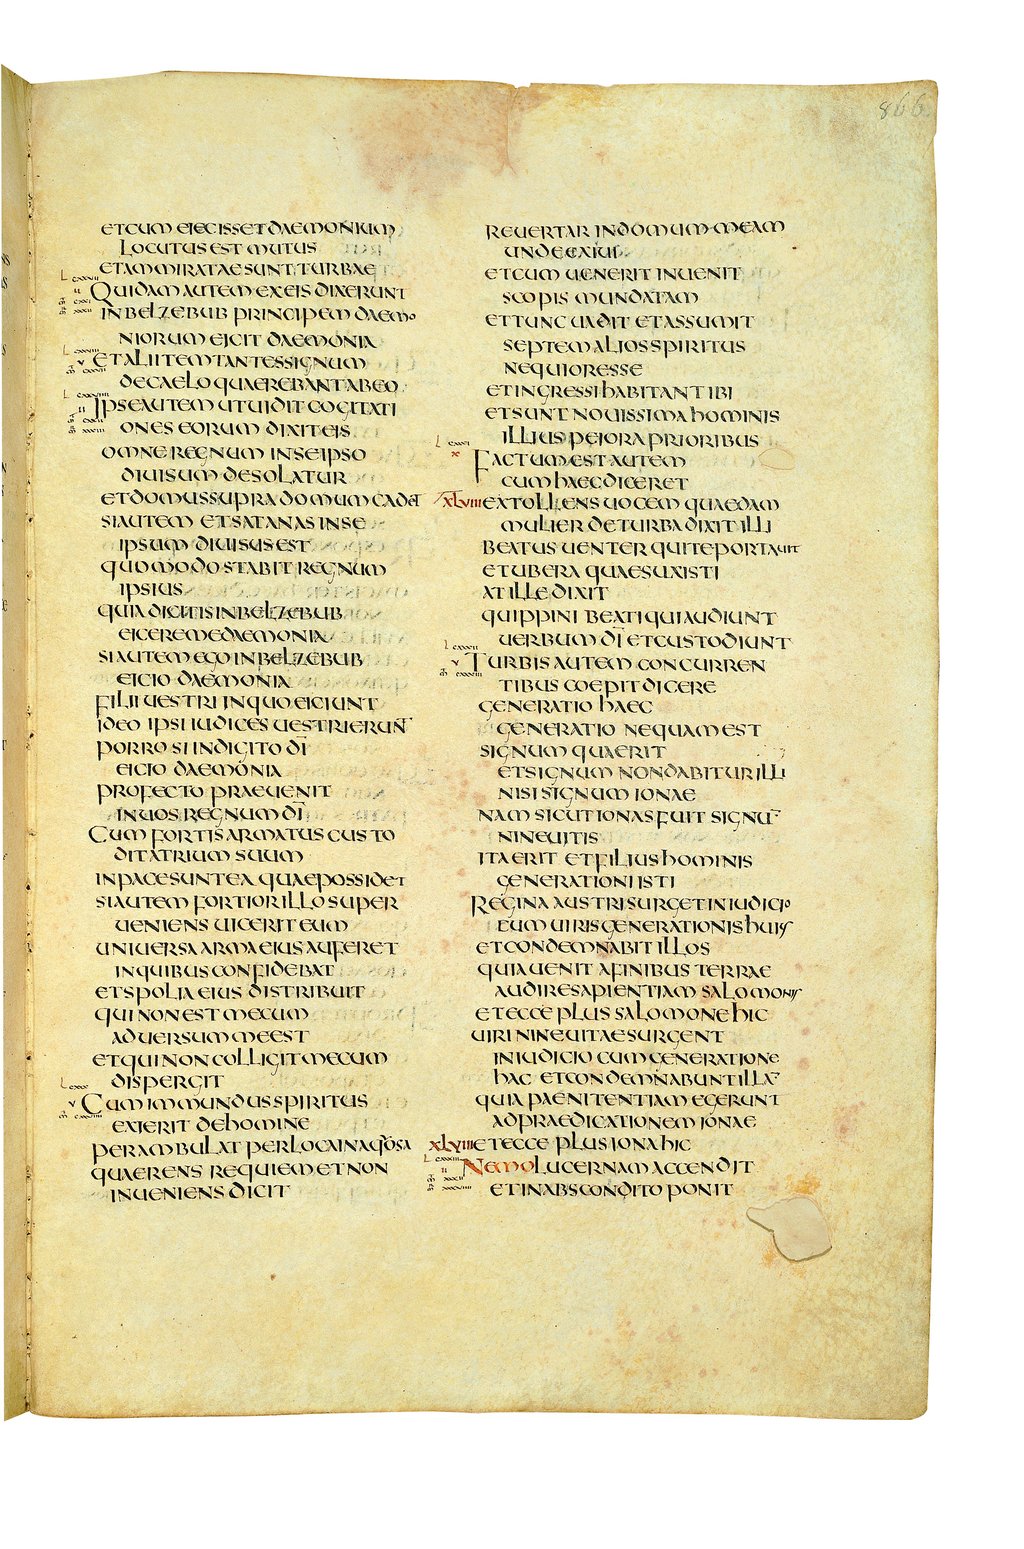 866
ETCUM EIECISSET DAEMONIUM
LOCUTUS EST MUTUS
ET AMMIRATAE SUNT TURBAE
QUIDAM AUTEM EX EIS DIXERUNT
IN BELZEBUB PRINCIPEM DAEMO
NIORUM EICIT DAEMONIA
ET ALII TEMTANTES SIGNUM
DE CAELO QUAEREBANT AB EO
IPSE AUTEM UT UIDIT COGITATI
ONES EORUM DIXIT EIS
OMNE REGNUM IN SE IPSO
DIUISUM DESOLATUR
ET DOMUS SUPRA DOMUM CADET
SI AUTEM ET SATANAS IN SE
IPSUM DIUISUS EST
QUOMODO STABIT REGNUM
IPSIUS
QUIA DICITIS IN BELZEBUB
EICERE ME DAEMONIA
SI AUTEM EGO IN BELZEBUB
EICIO DAEMONIA
FILII UESTRI IN QUO EICIUNT
IDEO IPSI IUDICES UESTRI ERUNT
PORRO SI IN DIGITO DI
EICIO DAEMONIA
PROFECTO PRAEUENIT
IN UOS REGNUM DI
CUM FORTIS ARMATUS CUSTO
DIT ATRIUM SUUM
IN PACE SUNT EA QUAE POSSIDET
SI AUTEM FORTIOR ILLO SUPER
UENIENS UICERIT EUM
UNIUERSA ARMA EIUS AUFERET
IN QUIBUS CONFIDEBAT
ET SPOLIA EIUS DISTRIBUIT
QUI NON EST MECUM
ADUERSUM ME EST
ET QUI NON COLLIGIT MECUM
DISPERGIT
CUM IMMUNDUS SPIRITUS
EXIERIT DE HOMINE
PERAMBULAT PER LOCA INAQUOSA
QUAERENS REQUIEM ET NON
INUENIENS DICIT
REUERTAR IN DOMUM MEAM
UNDE EXIUI
ET CUM UENERIT INUENIT
SCOPIS MUNDATAM
ET TUNC UADIT ET ASSUMIT
SEPTEM ALIOS SPIRITUS
NEQUIORES SE
ET INGRESSI HABITANT IBI
ET SUNT NOUISSIMA HOMINIS
ILLIUS PEIORA PRIORIBUS
FACTUM EST AUTEM
CUM HAEC DICERET
XLVIII EXTOLLENS UOCEM QUAEDAM
MULIER DE TURBA DIXIT ILLI
BEATUS UENTER QUI TE PORTAUIT
ET UBERA QUAE SUXISTI
AT ILLE DIXIT
QUIPPINI BEATI QUI AUDIUNT
UERBUM DI ET CUSTODIUNT
TURBIS AUTEM CONCURREN
TIBUS COEPIT DICERE
GENERATIO HAEC
GENERATIO NEQUAM EST
SIGNUM QUAERIT
ET SIGNUM NON DABITUR ILLI
NISI SIGNUM IONAE
NAM SICUT IONAS FUIT SIGNU
NINEUITIS
ITA ERIT ET FILIUS HOMINIS
GENERATIONI ISTI
REGINA AUSTRI SURGET IN IUDICIO
CUM UIRIS GENERATIONIS HUIS
ET CONDEMNABIT ILLOS
QUIA UENIT A FINIBUS TERRAE
AUDIRE SAPIENTIAM SALOMONIS
ET ECCE PLUS SALOMONE HIC
UIRI NINEUITAE SURGENT
IN IUDICIO CUM GENERATIONE
HAC ET CONDEMNABUNT ILLA
QUIA PAENITENTIAM EGERUNT
AD PRAEDICATIONEM IONAE
XLVIIII ET ECCE PLUS IONA HIC
NEMO LUCERNAM ACCENDIT
ET IN ABSCONDITO PONIT